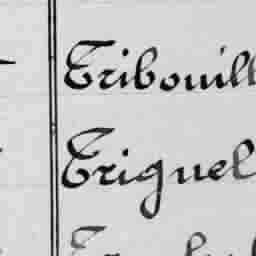 Tribouill
Triquel